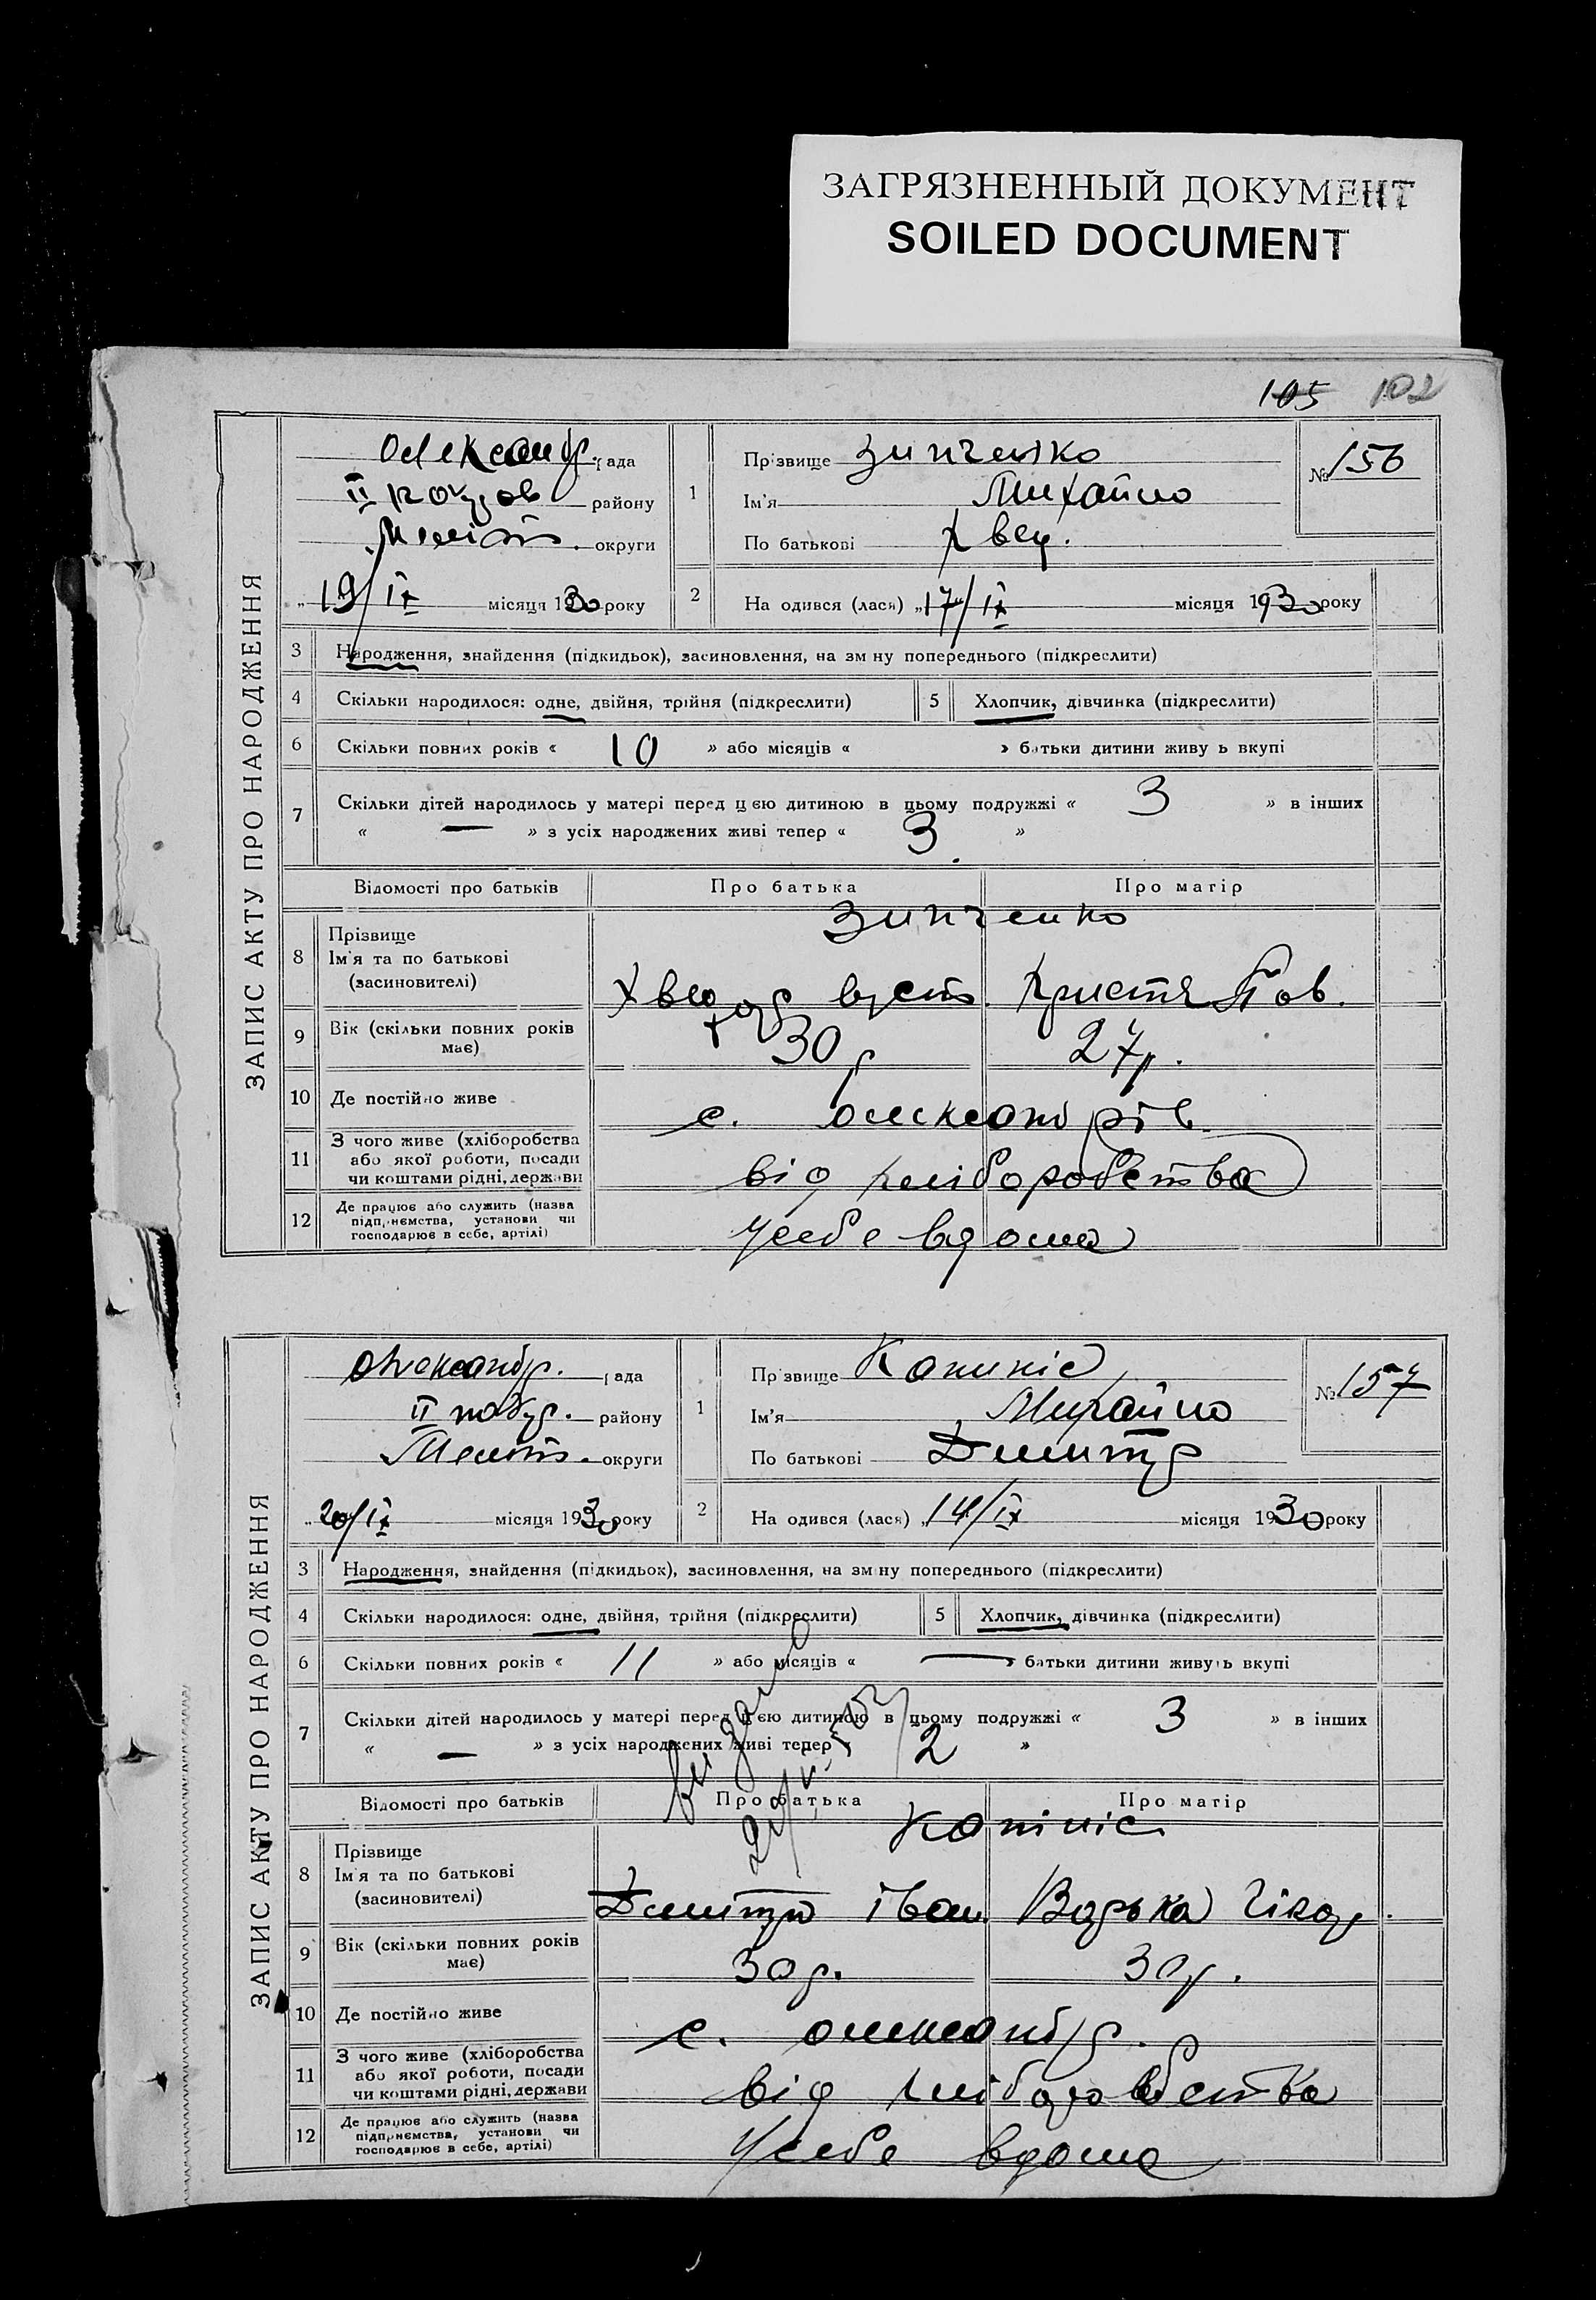 ЗАГРЯЗНЕННЫЙ ДОКУМЕНТ
SOILED DOCUMENT
105 102
ЗАПИС АКТУ ПРО НАРОДЖЕННЯ
Олександр. рада
II району
Меліт. округи
„19/IX місяця 1930 року
1 Прізвище Зинченко
Ім'я Михайло
По батькові Хвед.
№ 156
2 На одився (лася) „17/IX місяця 1930 року
3 Народження, знайдення (підкидьок), засиновлення, на зм ну попереднього (підкреслити)
4 Скільки народилося: одне, двійня, трійня (підкреслити) 5 Хлопчик, дівчинка (підкреслити)
6 Скільки повних років « 10 » або місяців « » батьки дитини живу ь вкупі
7 Скільки дітей народилось у матері перед цією дитиною в цьому подружжі « 3 » в інших
« — » з усіх народжених живі тепер « 3 »
Відомості про батьків Про батька Про матір
Зинченко
8 Прізвище
Ім'я та по батькові
(засновителі)
Христя Пав.
9 Вік (скільки повних років
має) 30 р 27 р.
10 Де постійно живе с. Олександрів
11 З чого живе (хліборобства
або якої роботи, посади
чи коштами рідні, держави
від хліборобства
12 Де працює або служить (назва
підприємства, установи чи
господарює в себе, артілі)
У себе вдома
ЗАПИС АКТУ ПРО НАРОДЖЕННЯ
Олександр. рада
II району
Меліт. округи
„20/IX місяця 1930 року
1 Прізвище
Ім'я Михайло
По батькові Дмитр
№ 157
2 На одився (лася) „14/IX місяця 1930 року
3 Народження, знайдення (підкидьок), засиновлення, на зм ну попереднього (підкреслити)
4 Скільки народилося: одне, двійня, трійня (підкреслити) 5 Хлопчик, дівчинка (підкреслити)
6 Скільки повних років « 11 » або місяців « — » батьки дитини живуть вкупі
7 Скільки дітей народилось у матері перед цією дитиною в цьому подружжі « 3 » в інших
« — » з усіх народжених живі тепер « 2 »
Відомості про батьків Про батька Про матір
8 Прізвище
Ім'я та по батькові
(засновителі)
Дмитро Іван. Варька
9 Вік (скільки повних років
має) 30 р. 30 р.
10 Де постійно живе с. Олександр.
11 З чого живе (хліборобства
або якої роботи, посади
чи коштами рідні, держави
від хліборобства
12 Де працює або служить (назва
підприємства, установи чи
господарює в себе, артілі)
У себе вдома